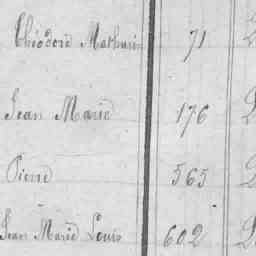 Théodore Mathurin 71
Jean Marie 176
Pierre 565
Jean Marie Louis 602